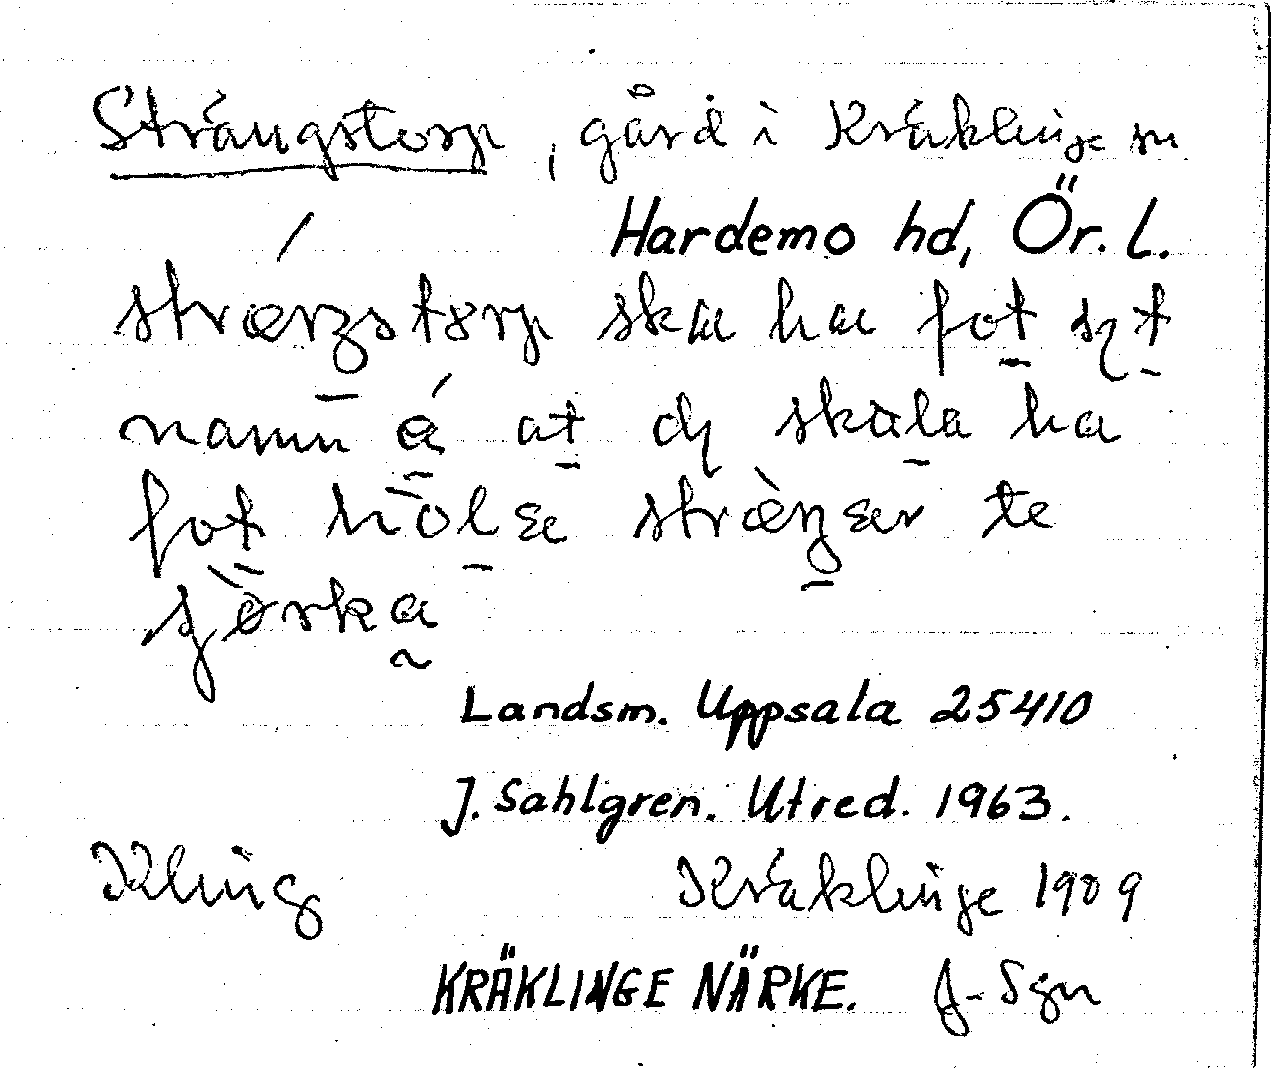 Strängstorp, gård i Kräklinge sn
Hardemo hd, Ör. L.
stræŋstorp ska ha fot sit
namn å at di skola ha
fot hölæ stræŋær te
sjörka
Landsm. Uppsala 25410
J. Sahlgren. Utred. 1963.
Kling Kräklinge 1909
KRÄKLINGE NÄRKE. J. Sgn